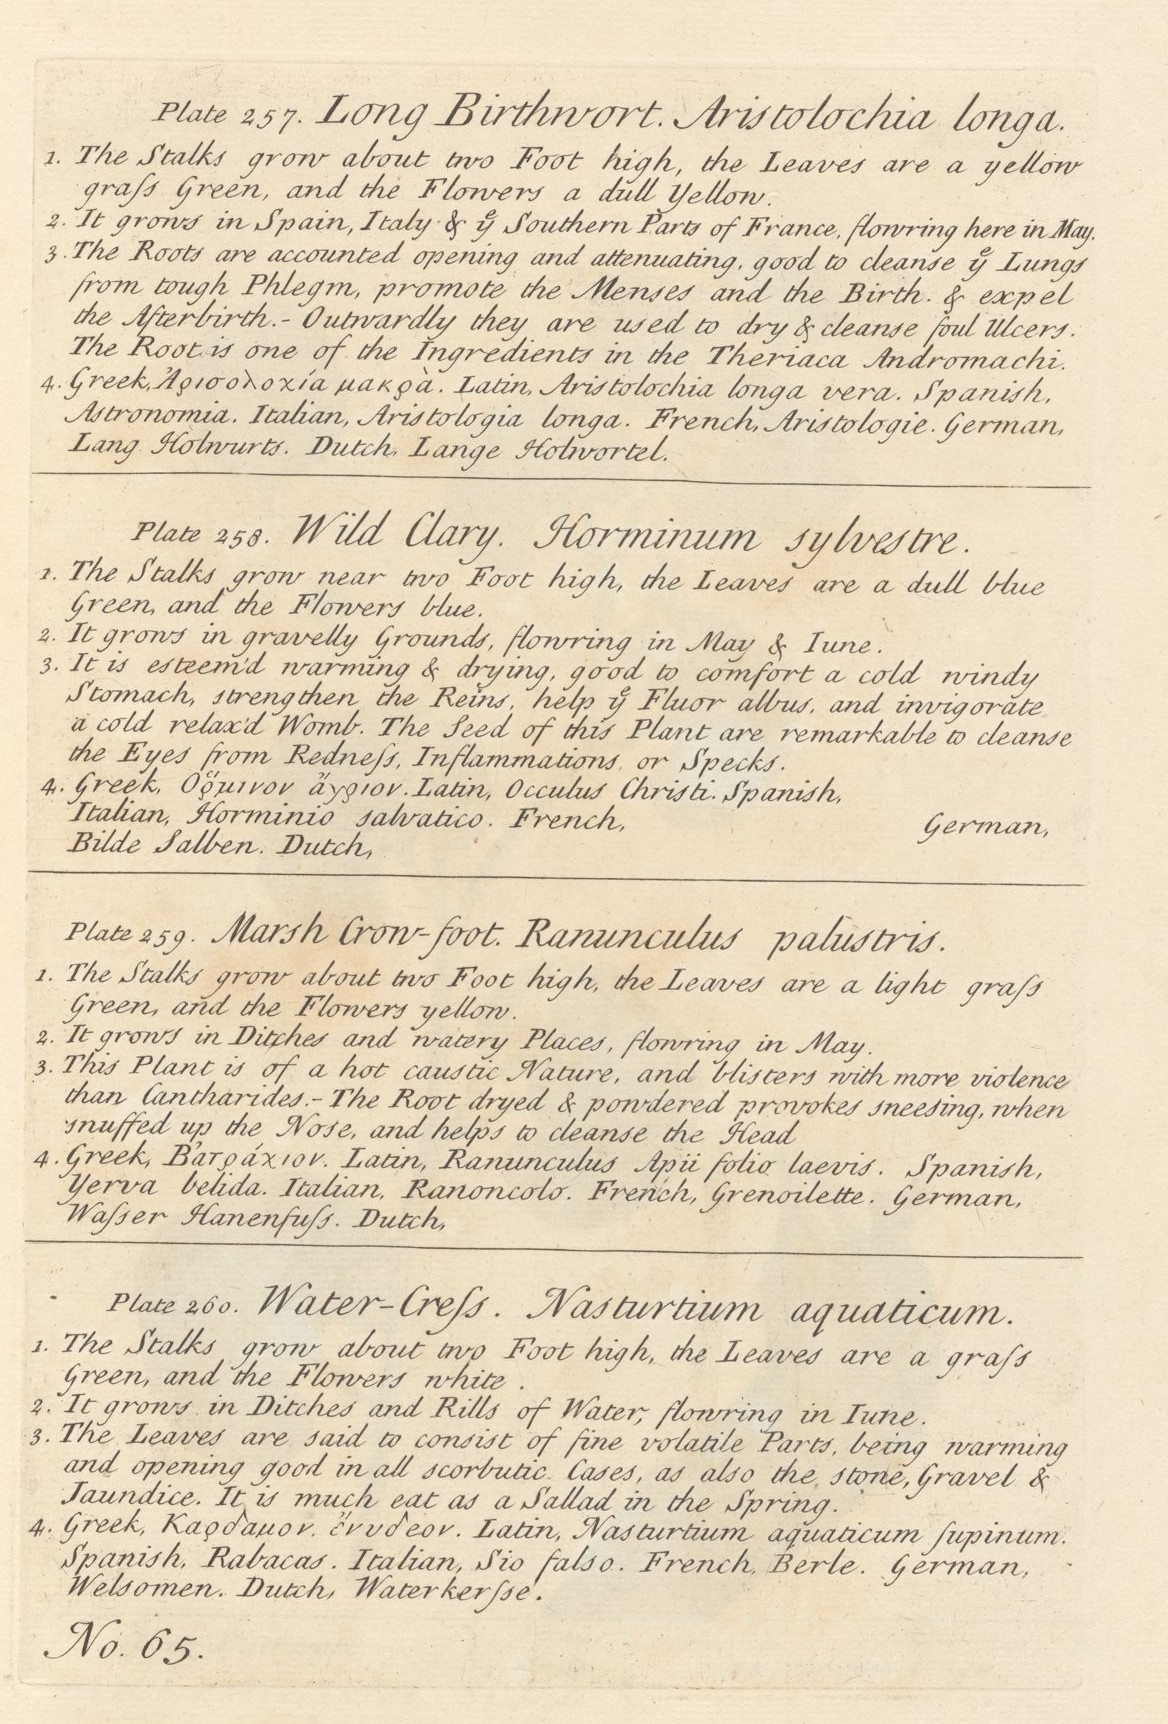 Plate 257. Long Birthwort. Aristolochia longa.
1. The Stalks grow about two Foot high, the Leaves are a yellow
graſs Green, and the Flowers a dull Yellow.
2. It grows in Spain, Italy & yͤ Southern Parts of France, flowring here in May.
3. The Roots are accounted opening and attenuating, good to cleanse yͤ Lungs
from tough Phlegm, promote the Menses and the Birth. & expel
the Afterbirth.- Outwardly they are used to dry & cleanse foul Ulcers.
The Root is one of the Ingredients in the Theriaca Andromachi.
4. Greek, Ἀρισολοχία μακρὰ. Latin, Aristolochia longa vera. Spanish,
Astronomia. Italian, Aristologia longa. French, Aristologie. German,
Lang Holwurts. Dutch, Lange Holwortel.
Plate 258. Wild Clary. Horminum sylvestre.
1. The Stalks grow near two Foot high, the Leaves are a dull blue
Green, and the Flowers blue.
2. It grows in gravelly Grounds, flowring in May & Iune.
3. It is esteem'd warming & drying, good to comfort a cold windy
Stomach, strengthen the Reins, help yͤ Fluor albus, and invigorate
a cold relax'd Womb. The Seed of this Plant are remarkable to cleanse
the Eyes from Redneſs, Inflammations or Specks.
4. Greek, Ὅρμινον ἄγριον. Latin, Occulus Christi. Spanish,
Italian, Horminio salvatico. French, German,
Bilde Salben. Dutch,
Plate 259. Marsh Crow-foot. Ranunculus palustris.
1. The Stalks grow about two Foot high, the Leaves are a light graſs
Green, and the Flowers yellow.
2. It grows in Ditches and watery Places, flowring in May.
3. This Plant is of a hot caustic Nature, and blisters with more violence
than Cantharides.- The Root dryed & powdered provokes sneesing, when
snuffed up the Nose, and helps to cleanse the Head
4. Greek, Βατράχιον. Latin, Ranunculus Apii folio laevis. Spanish,
Yerva belida. Italian, Ranoncolo. French, Grenoilette. German,
Waſser Hanenfuſs. Dutch,
Plate 260. Water-Creſs. Nasturtium aquaticum.
1. The Stalks grow about two Foot high, the Leaves are a graſs
Green, and the Flowers white.
2. It grows in Ditches and Rills of Water, flowring in Iune.
3. The Leaves are said to consist of fine volatile Parts, being warming
and opening good in all scorbutic Cases, as also the stone, Gravel &
Jaundice. It is much eat as a Sallad in the Spring.
4. Greek, Καρδαμον ἔνυδεον. Latin, Nasturtium aquaticum ſupinum.
Spanish, Rabacas. Italian, Sio falso. French, Berle. German,
Welsomen. Dutch, Waterkerſse.
No. 65.